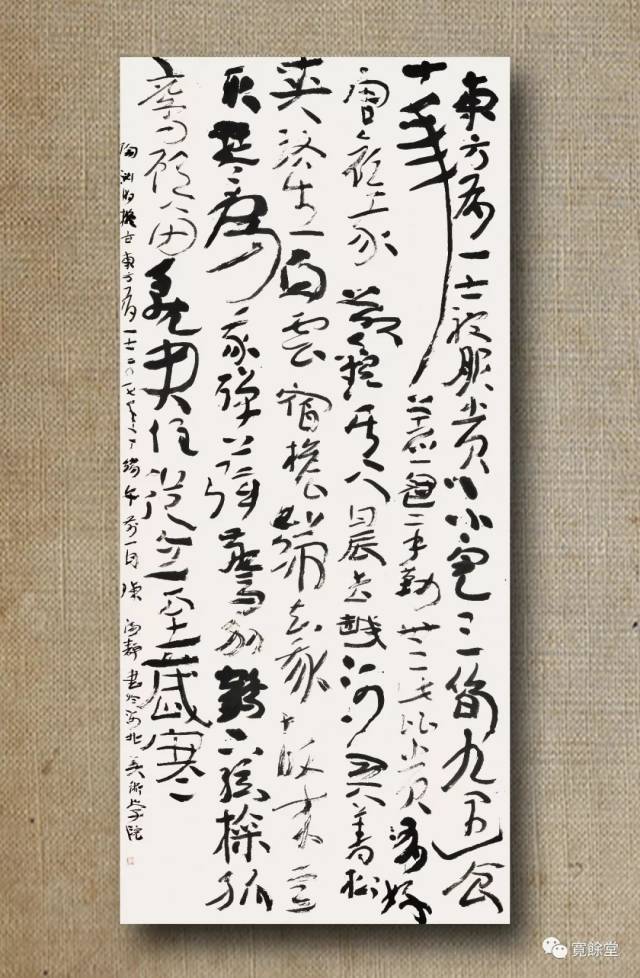 東方有一士被服常不完三旬九遇食
十年著一冠辛勤無此比常有好
容顏我欲觀其人晨去越河關青松
夾路生白雲宿簷端知我故來意
取琴為我彈上弦驚別鶴下弦操孤
鸞願留就君住從今至歲寒
陶淵明擬古東方有一士二〇一七年端午前一日書於河北美術學院
寬餘堂